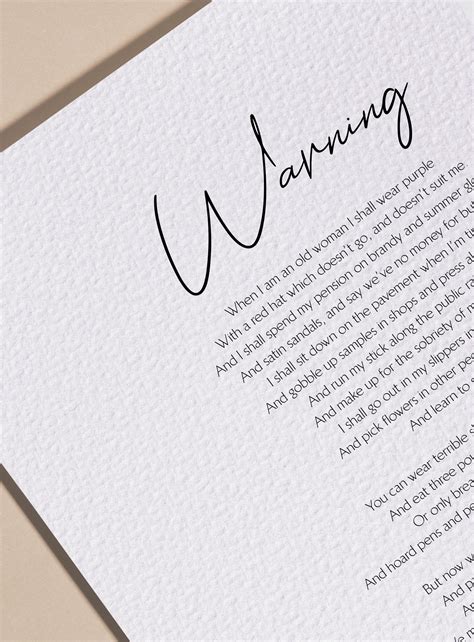 Warning
When I am an old woman I shall wear purple
With a red hat which doesn't go, and doesn't suit me
And I shall spend my pension on brandy and summer
And satin sandals, and say we've no money for
I shall sit down on the pavement when I'm
And gobble up samples in shops and press
And run my stick along the public
And make up for the sobriety of
I shall go out in my slippers in
And pick flowers in other
And learn to
You can wear terrible
And eat three
Or only
And hoard pens and
But now
And